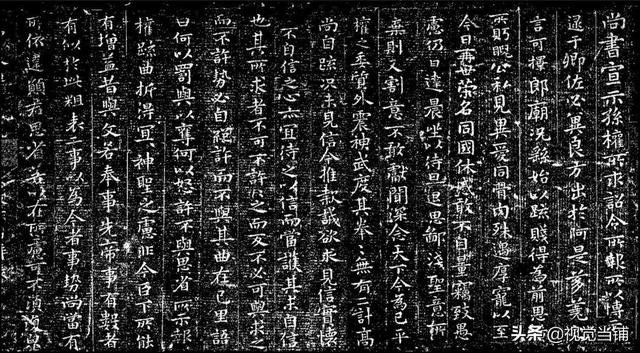 尚書宣示孫權所求詔令所報所以博
逮于卿佐必冀良方出於阿是芻蕘
言可擇郎廟況繇始以疏賤得為前恩
所盱睨公私見異愛同骨肉殊遇厚寵以至
今日再世榮名同國休慼敢不自量竊致愚
慮仍日達晨坐以待旦退思鄙淺聖意所
棄則又割意不敢獻聞深念天下今為已平
權之委質外震神武度其拳拳無有二計高
尚自疏況未見信今推款誠欲求見信實懷
不自信之心亦宜待之以信而當護其未自信
也其所求者不可不許許之而反不必可與求之
而不許勢必自絕許而不與其曲在己里語
曰何以罰與以奪何以怒許不與思省所示報
權疏曲折得宜宜神聖之慮非今臣下所能
有增益昔與文若奉事先帝事有數者
有似於此粗表二事以為今者事勢尚當有
所依違願君思省若以在所慮可不須復
头条 @视觉当铺